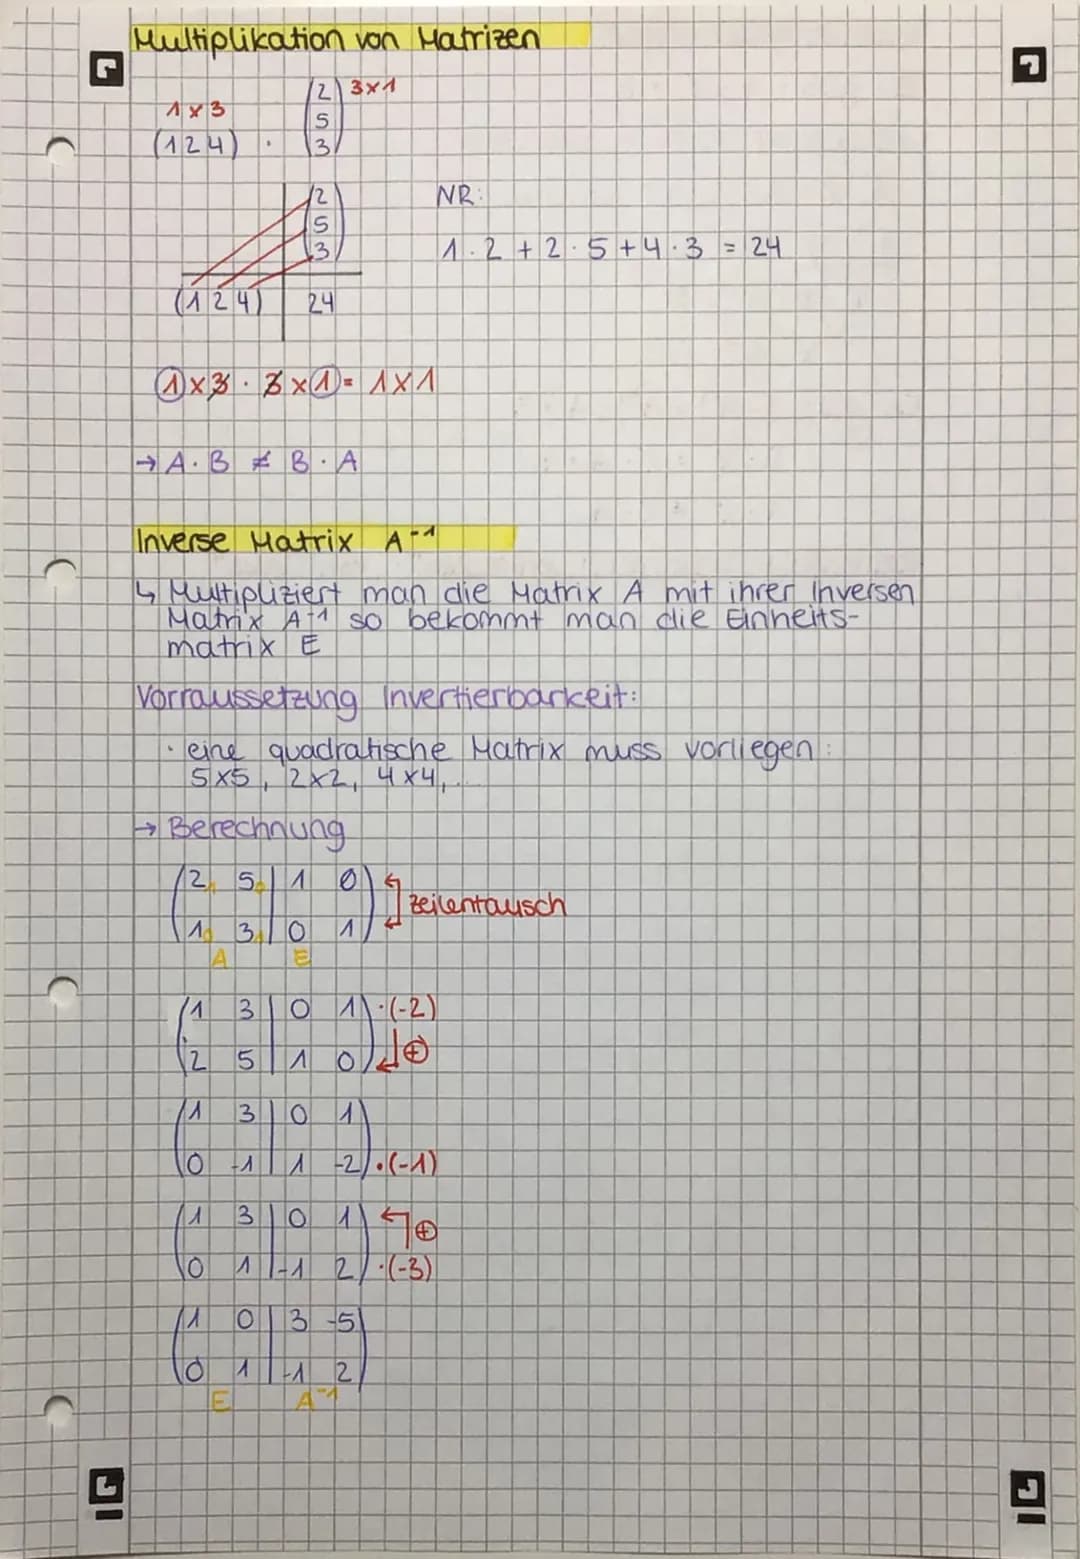 Multiplikation von Matrizen
1 x 3
(1 2 4) · (2 5 3) 3x1
(2
5
3)
(1 2 4) | 24
NR:
1 · 2 + 2 · 5 + 4 · 3 = 24
1 x 3 · 3 x 1 = 1 x 1
→ A · B ≠ B · A
Inverse Matrix A⁻¹
↳ Multipliziert man die Matrix A mit ihrer Inversen
Matrix A⁻¹ so bekommt man die Einheits-
matrix E
Vorraussetzung Invertierbarkeit:
· eine quadratische Matrix muss vorliegen:
5x5, 2x2, 4x4,...
→ Berechnung
(2 1 5 0 | 1 0)
zeilentausch
(1 0 3 1 | 0 1)
A E
(1 3 | 0 1) ·(-2)
(2 5 | 1 0) ↵ ⊕
(1 3 | 0 1)
(0 -1 | 1 -2) ·(-1)
(1 3 | 0 1) ⊕
(0 1 | -1 2) ·(-3)
(1 0 | 3 -5)
(0 1 | -1 2)
E A⁻¹